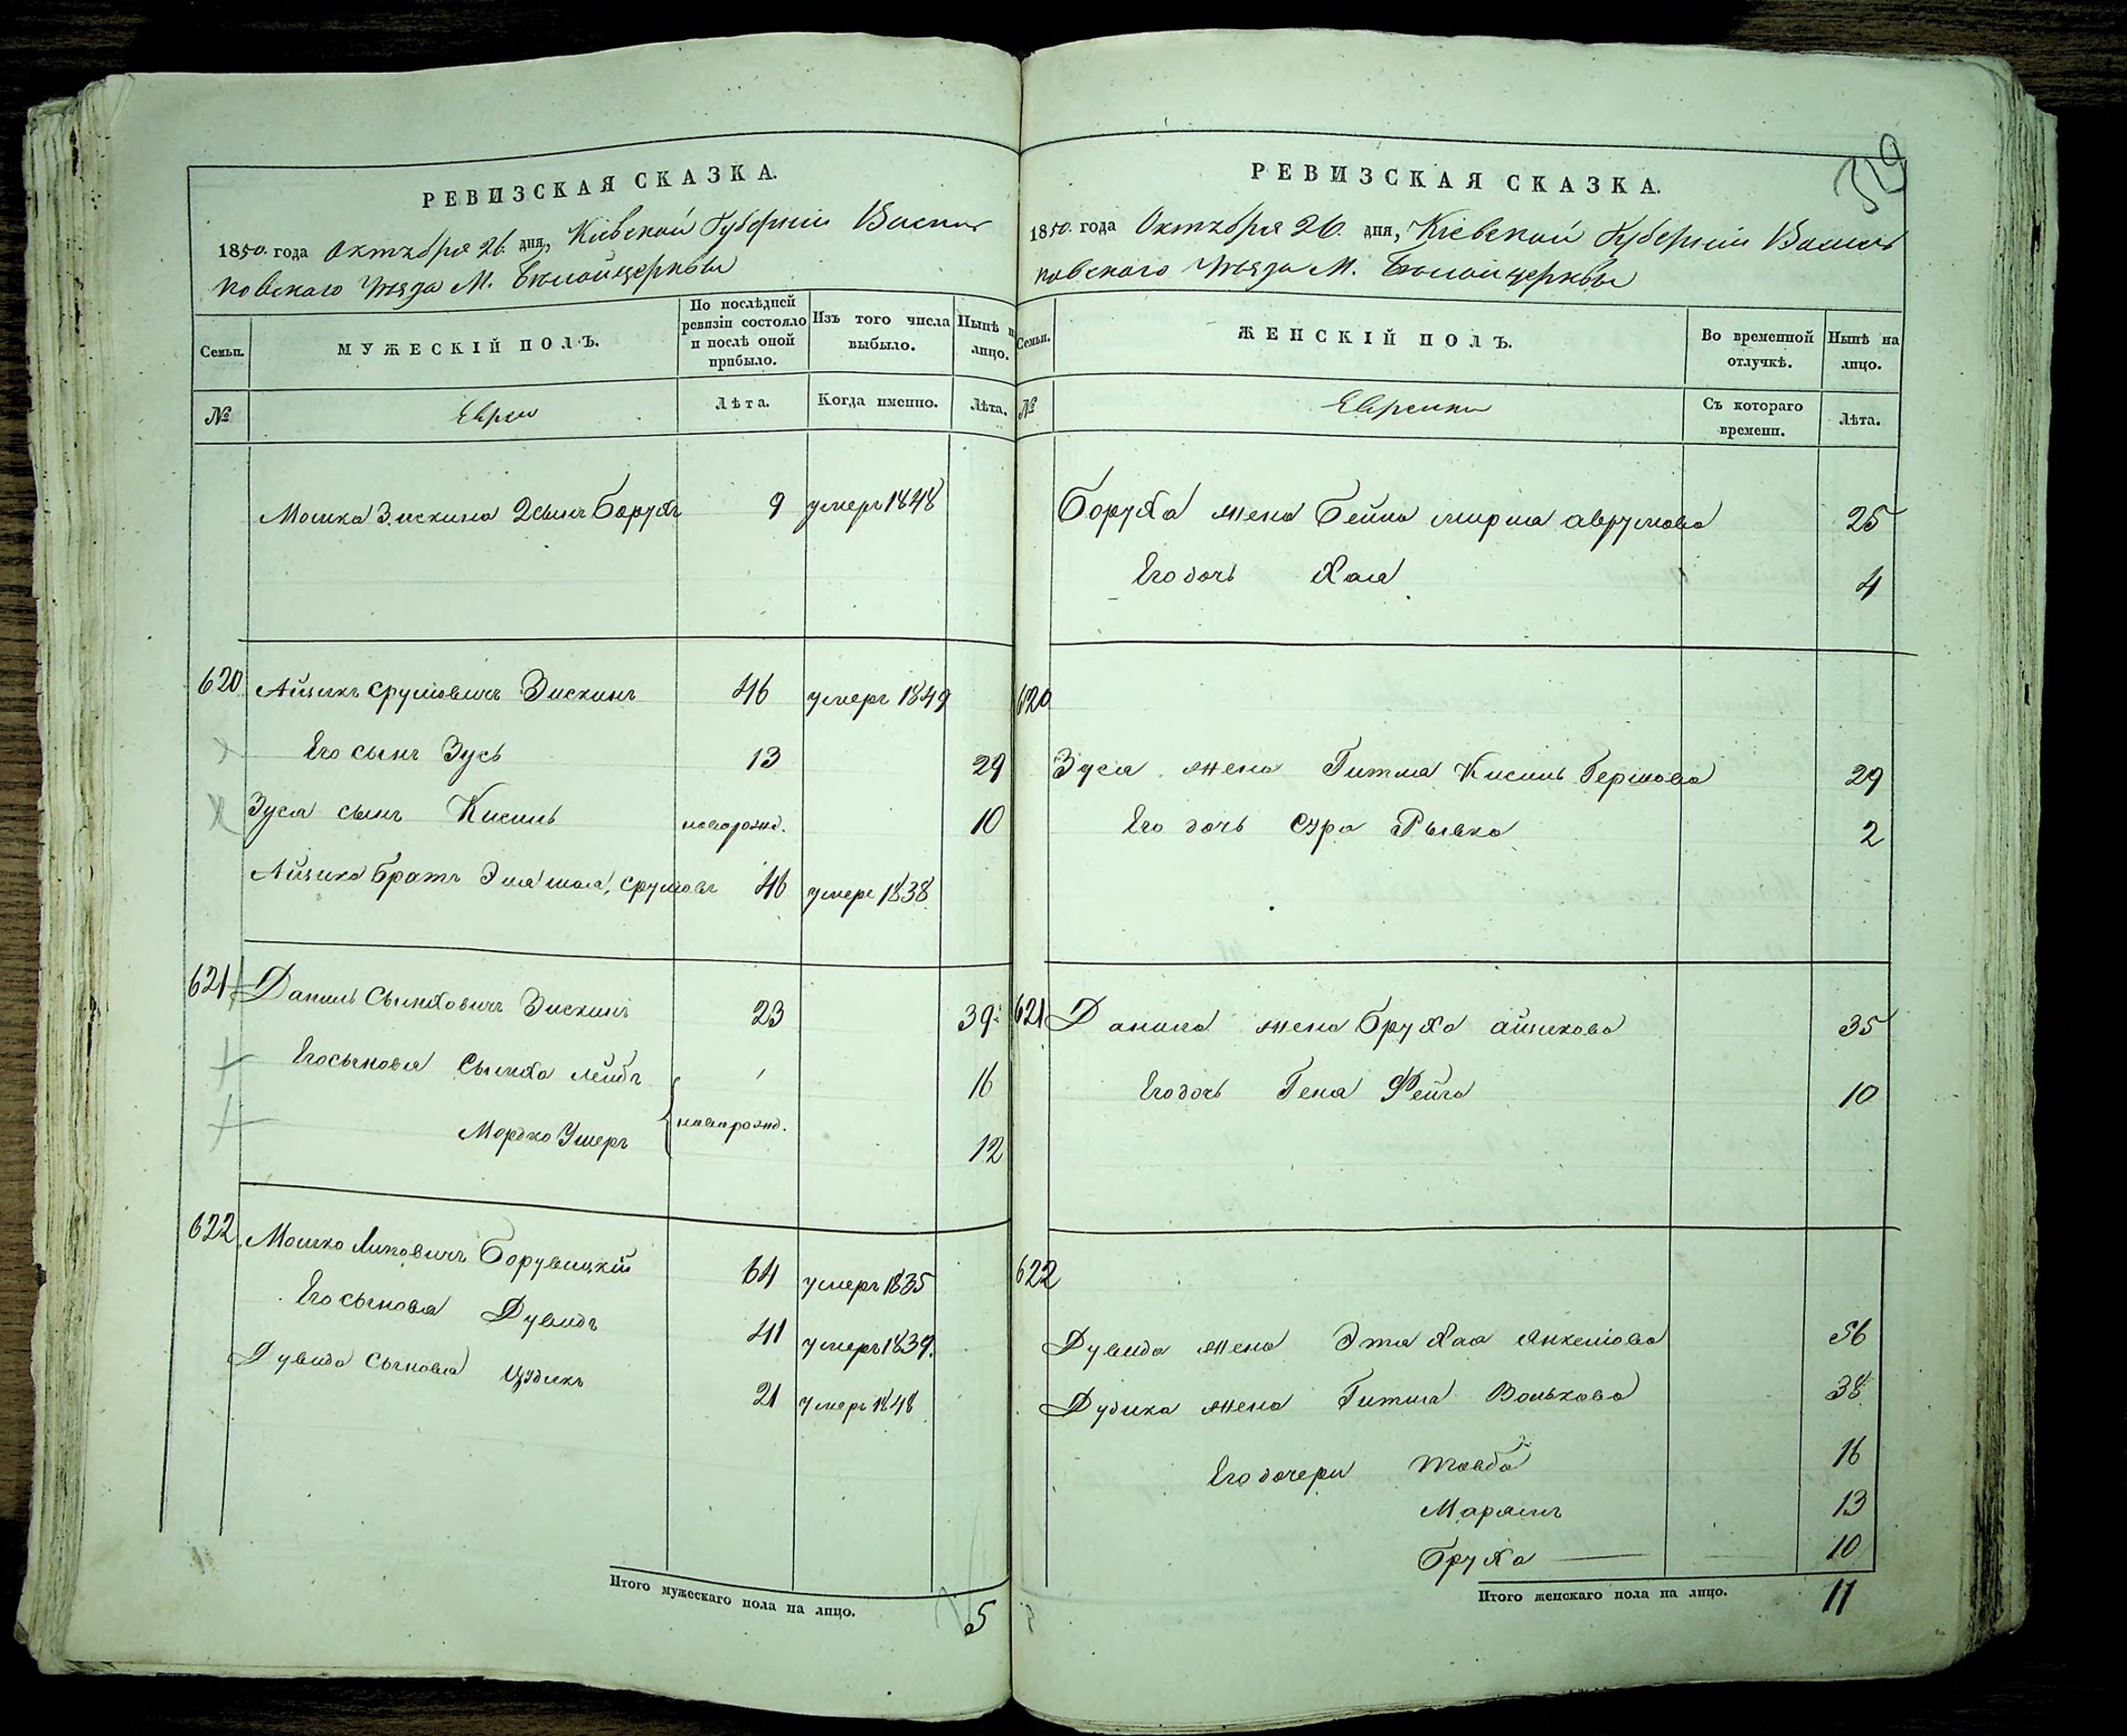 РЕВИЗСКАЯ СКАЗКА.
1850. года Октября 26. дня, Кіевской Губерніи Василь
ковскаго Уѣзда М. Бѣлойцеркви
Семьи.
МУЖЕСКІЙ ПОЛЪ.
По послѣдней ревизіи состояло и послѣ оной прибыло.
Изъ того числа выбыло.
Нынѣ на лицо.
№
Евреи
Лѣта.
Когда именно.
Лѣта.
Мошка Зискина 2 сынъ Борухъ 9 умеръ 1848
620 Айзикъ Срулiовичъ Зискинъ 46 умеръ 1849
Его сынъ Зусь 13 29
Зуся сынъ Кисиль новорожд. 10
Айзика братъ Эля Срулiовъ 46 умеръ 1838
621 Даниль Сымховичъ Зискинъ 23 39
Его сыновья Сымха Лейбъ 16
Мордко Ушеръ новорожд. 12
622 Мошко Липовичъ 64 умеръ 1835
Его сыновья Дувидъ 41 умеръ 1839.
Дувида сыновья 21 умеръ 1848
Итого мужескаго пола на лицо. 5
319
РЕВИЗСКАЯ СКАЗКА.
1850. года Октября 26. дня, Кіевской Губерніи Василь
ковскаго Уѣзда М. Бѣлойцеркви
Семьи.
ЖЕНСКІЙ ПОЛЪ.
Во временной отлучкѣ.
Нынѣ на лицо.
№
Еврейки
Съ котораго времени.
Лѣта.
Боруха жена Бейла Мирля Аврумова 25
Его дочь Хая 4
620
Зуся жена Гитля Кисиль Гершкова 29
Его дочь Сура Рывка 2
621 Данила жена Бруха Айзикова 35
Его дочь Геня Фейга 10
622
Дувида жена Эта Хая Янкелiова 56
Дудика жена Гитля Волькова 38
Его дочери Товба 16
Марямъ 13
Бруха 10
Итого женскаго пола на лицо. 11